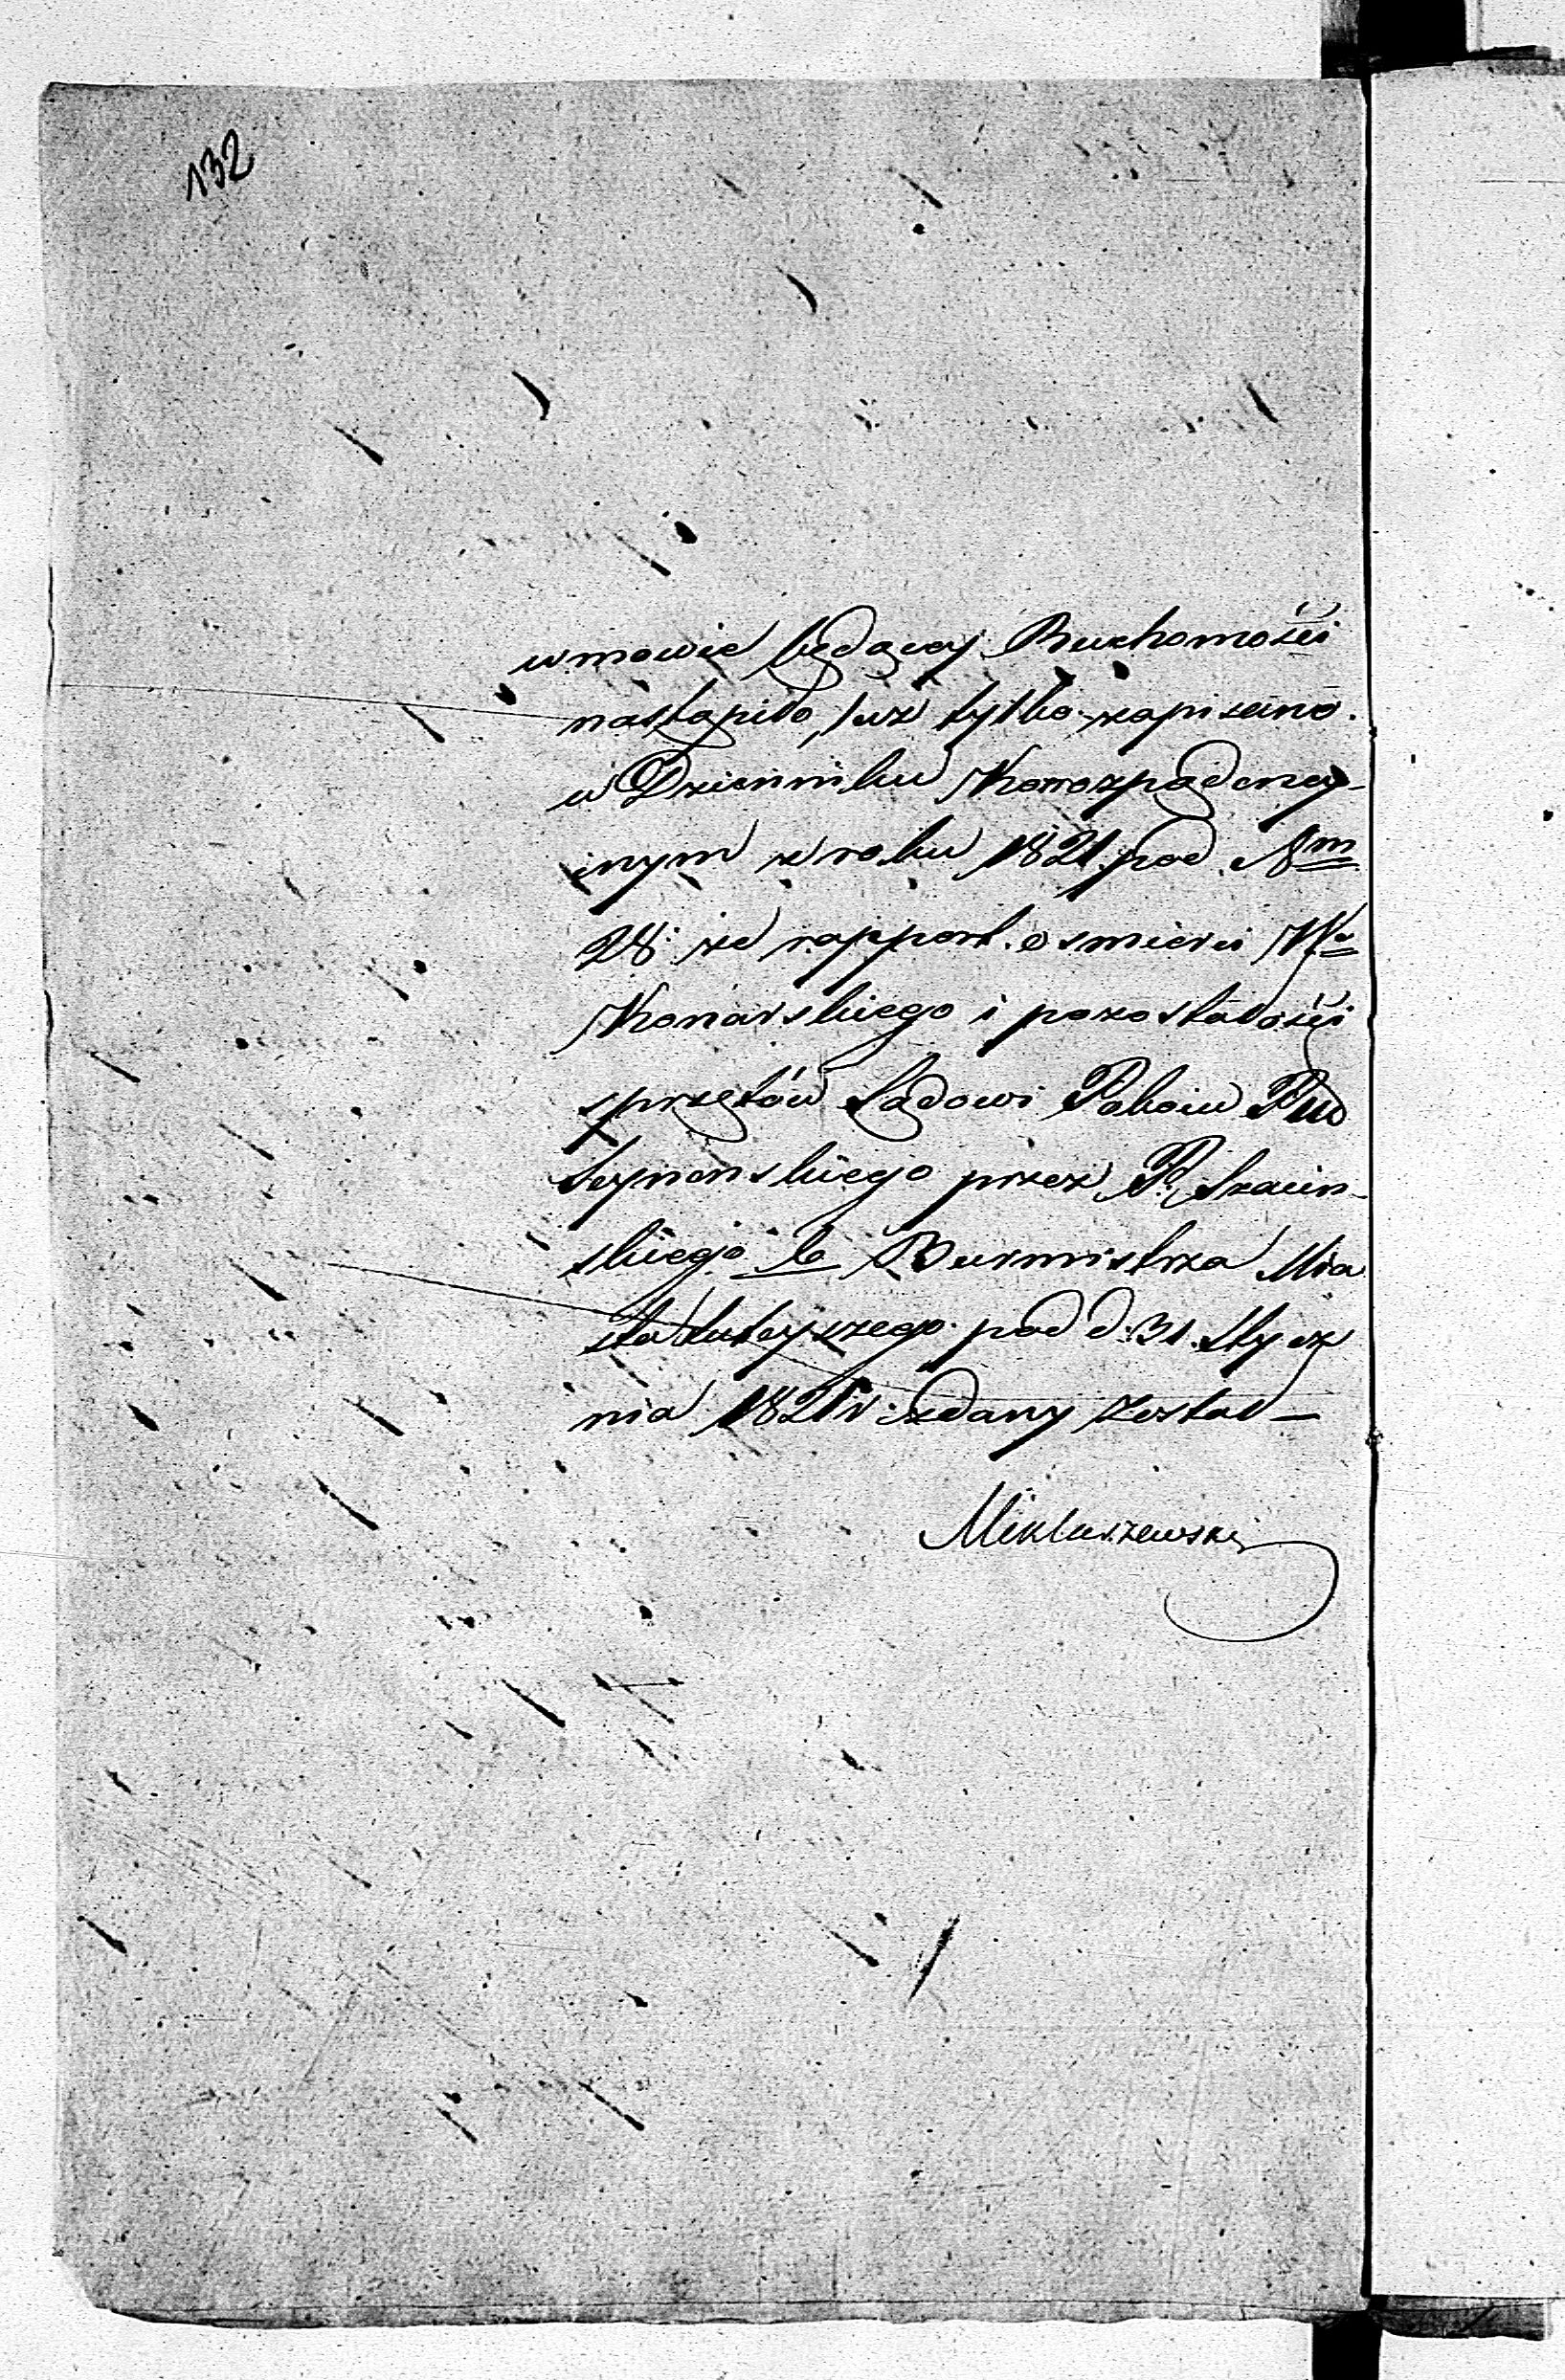 132
w mowie będącey Ruchomości
nastąpiło, lecz tylko zapisano.
w Dzienniku Korrozpądency-
inym z roku 1821. pod Nm
28: że rapport. o smierci
Konarskiego i pozostałości
sprzętów Sądowi Pokoiu Pu
przez P.
skiego b Burmistrza Mia
sta tuteyszego. pod d. 31. Stycz
nia 1821 r: zdany został —
Mikluszewski